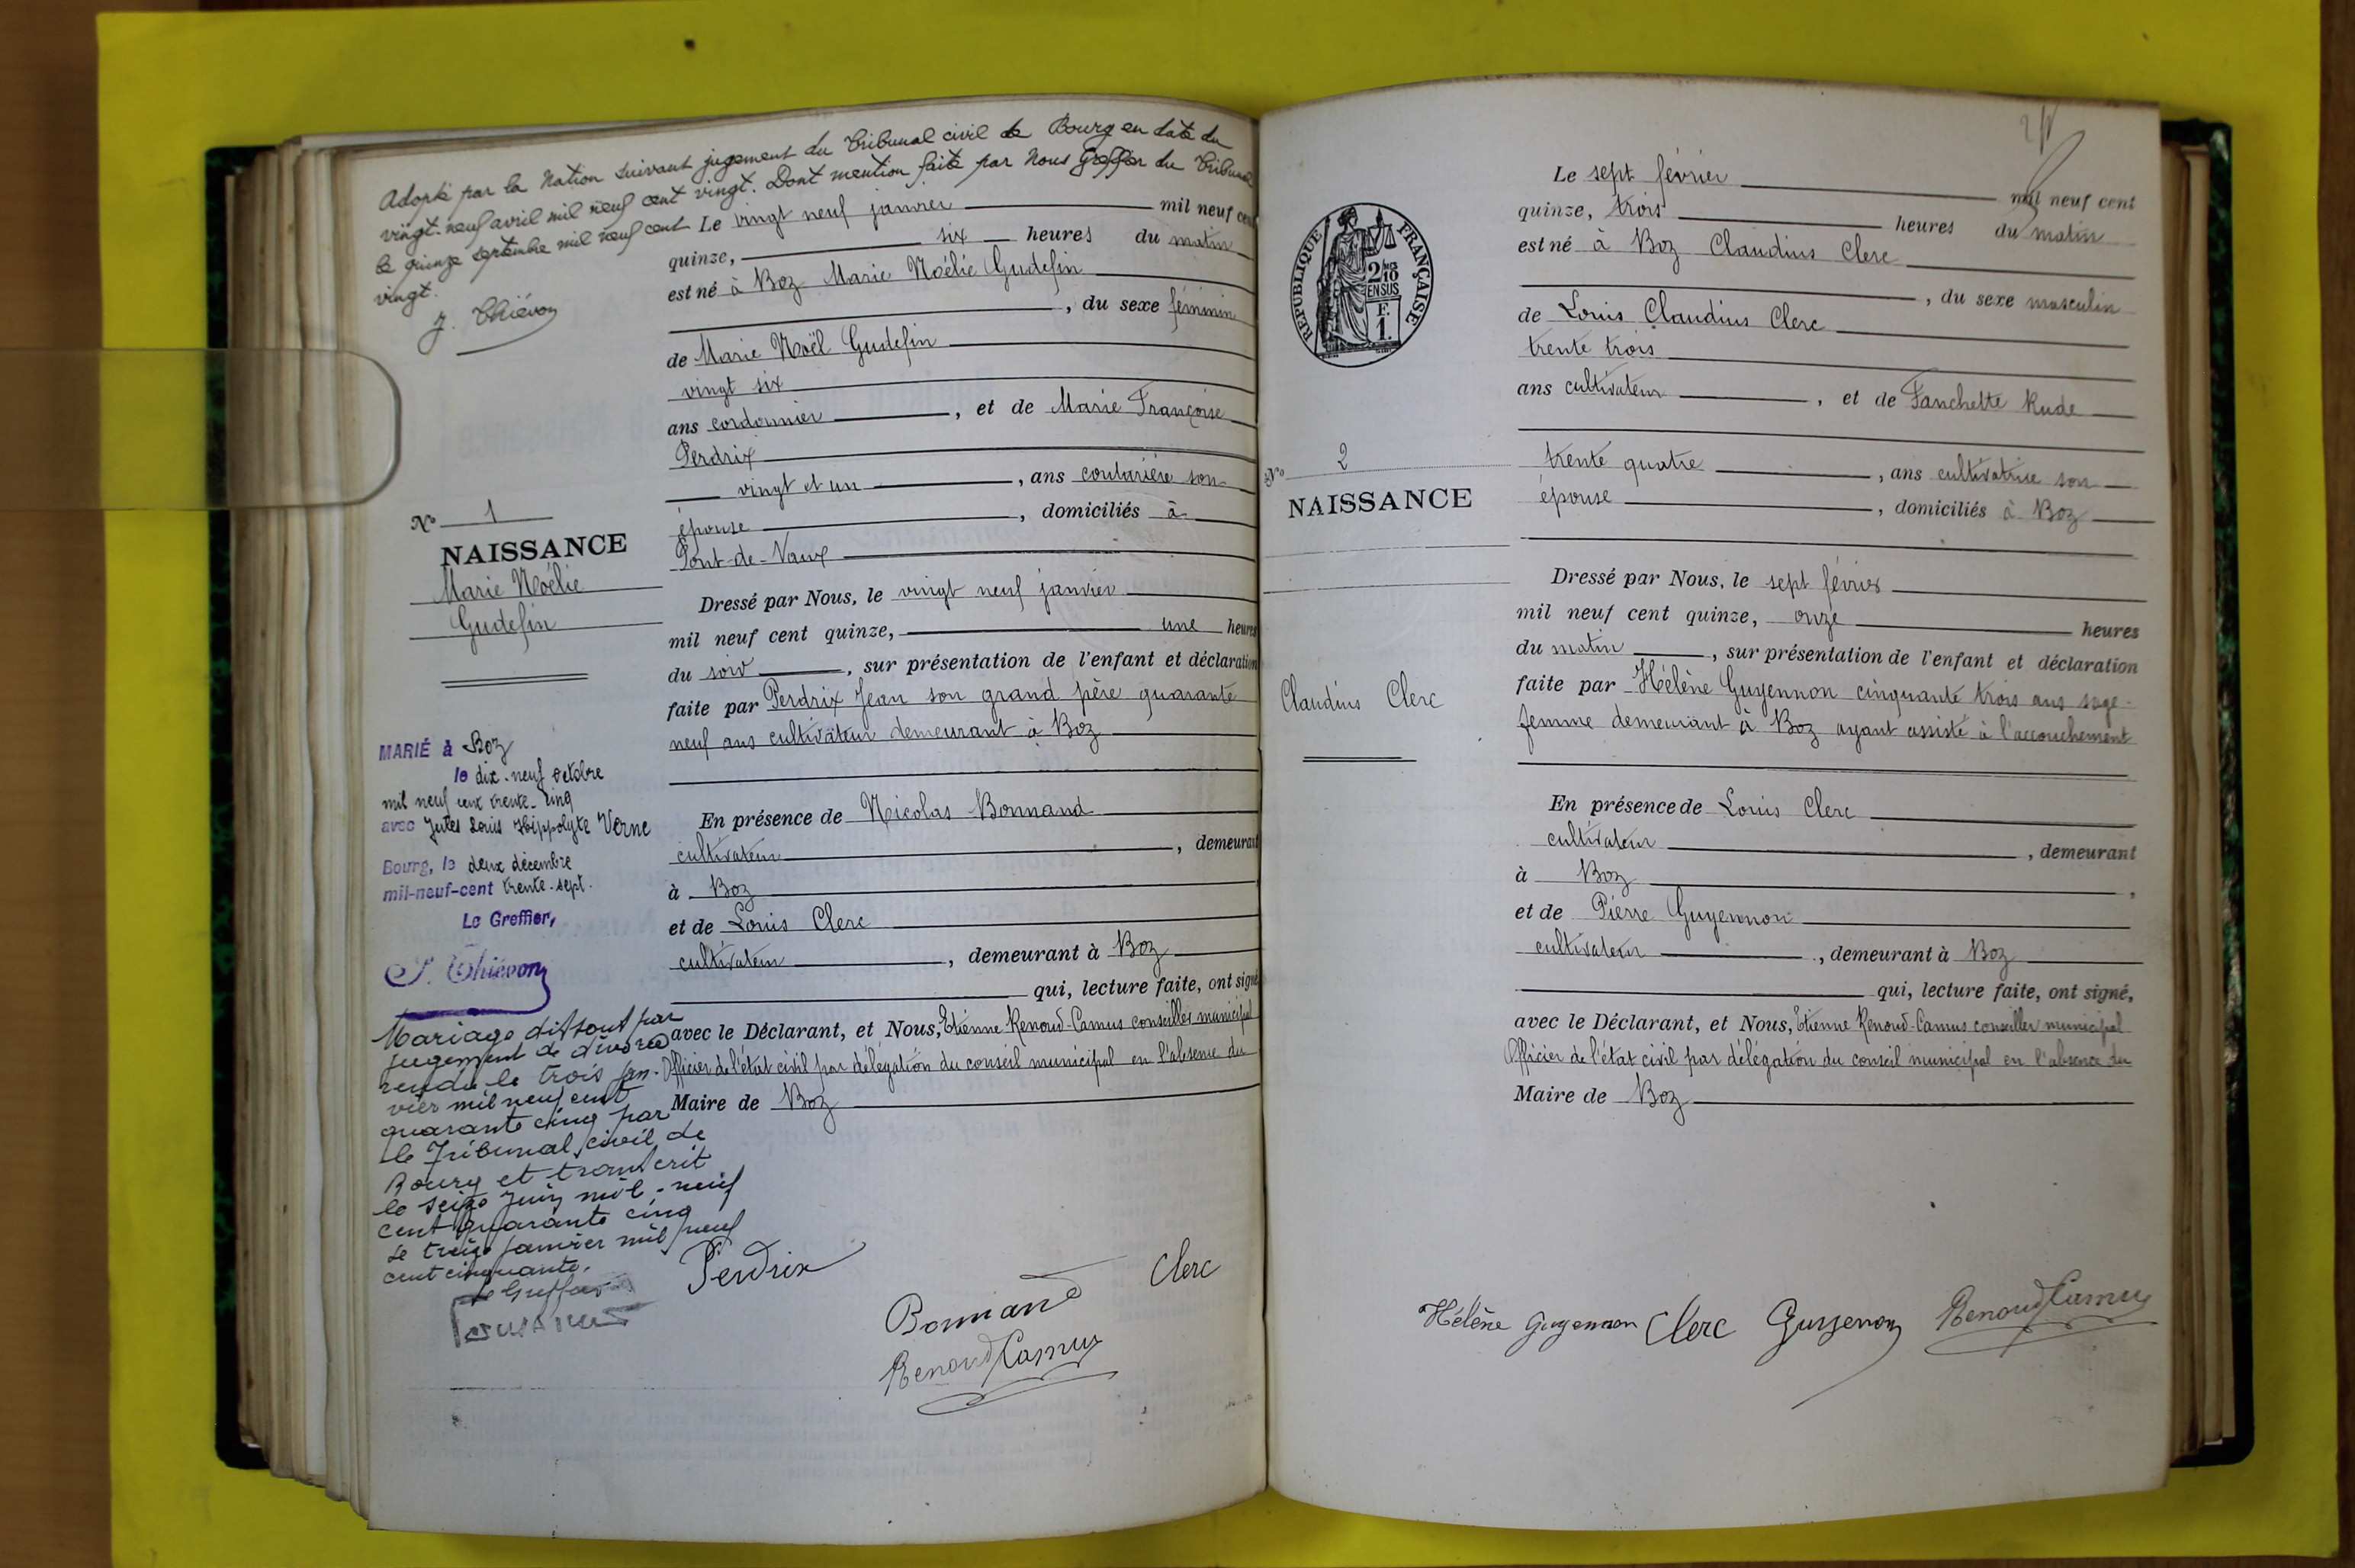 Adopté par la Nation suivant jugement du Tribunal civil de Bourg en date du
vingt-neuf avril mil neuf cent vingt. Dont mention faite par Nous Greffier du Tribunal
le quinze septembre mil neuf cent
vingt.
J. Thiévon
Le vingt neuf janvier mil neuf cent
quinze, six heures du matin
est né à Boz Marie Noélie Gudefin
, du sexe féminin
de Marie Noël Gudefin
vingt six
ans cordonnier , et de Marie Françoise
Perdrix
vingt et un , ans couturière son
épouse , domiciliés à
Pont-de-Vaux
Nº 1
NAISSANCE
Marie Noélie
Gudefin
Dressé par Nous, le vingt neuf janvier
mil neuf cent quinze, une heures
du soir , sur présentation de l'enfant et déclaration
faite par Perdrix Jean son grand père quarante
neuf ans cultivateur demeurant à Boz
MARIÉ à Boz
le dix-neuf octobre
mil neuf cent trente-cinq
avec Jules Louis Hippolyte Verne
Bourg, le deux décembre
mil-neuf-cent trente-sept.
Le Greffier,
J. Thiévon
En présence de Nicolas Bonnand
cultivateur , demeurant
à Boz
et de Louis Clerc
cultivateur , demeurant à Boz
qui, lecture faite, ont signé
avec le Déclarant, et Nous, Etienne Renoud-Camus conseiller municipal
Officier de l'état civil par délégation du conseil municipal en l'absence du
Maire de Boz
Mariage dissout par
jugement de divorce
rendu le trois jan-
vier mil neuf cent
quarante cinq par
le Tribunal civil de
Bourg et transcrit
le seize Juin mil-neuf
cent quarante cinq
Le treize janvier mil neuf
cent cinquante.
Le Greffier
Perdrix
Bonnand
Clerc
Renoud Camus
Le sept février mil neuf cent
quinze, trois heures du matin
est né à Boz Claudius Clerc
, du sexe masculin
de Louis Claudius Clerc
trente trois
ans cultivateur , et de Fanchette Rude
trente quatre , ans cultivatrice son
épouse , domiciliés à Boz
RÉPUBLIQUE FRANÇAISE
2/10
EN SUS
F.
1.
Nº 2
NAISSANCE
Claudius Clerc
Dressé par Nous, le sept février
mil neuf cent quinze, onze heures
du matin , sur présentation de l'enfant et déclaration
faite par Hélène Guyennon cinquante trois ans sage-
femme demeurant à Boz ayant assisté à l'accouchement
En présence de Louis Clerc
cultivateur , demeurant
à Boz ,
et de Pierre Guyennon
cultivateur , demeurant à Boz
qui, lecture faite, ont signé,
avec le Déclarant, et Nous, Etienne Renoud-Camus conseiller municipal
Officier de l'état civil par délégation du conseil municipal en l'absence du
Maire de Boz
Hélène Guyennon Clerc Guyennon Renoud Camus